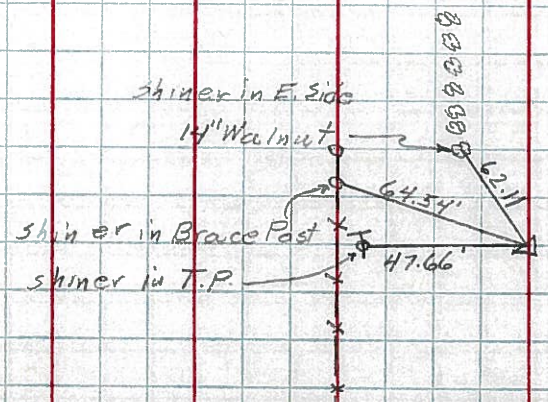 shiner in E. Side
14" Walnut
62.11
64.54'
shiner in Brace Post
47.66'
shiner in T.P.